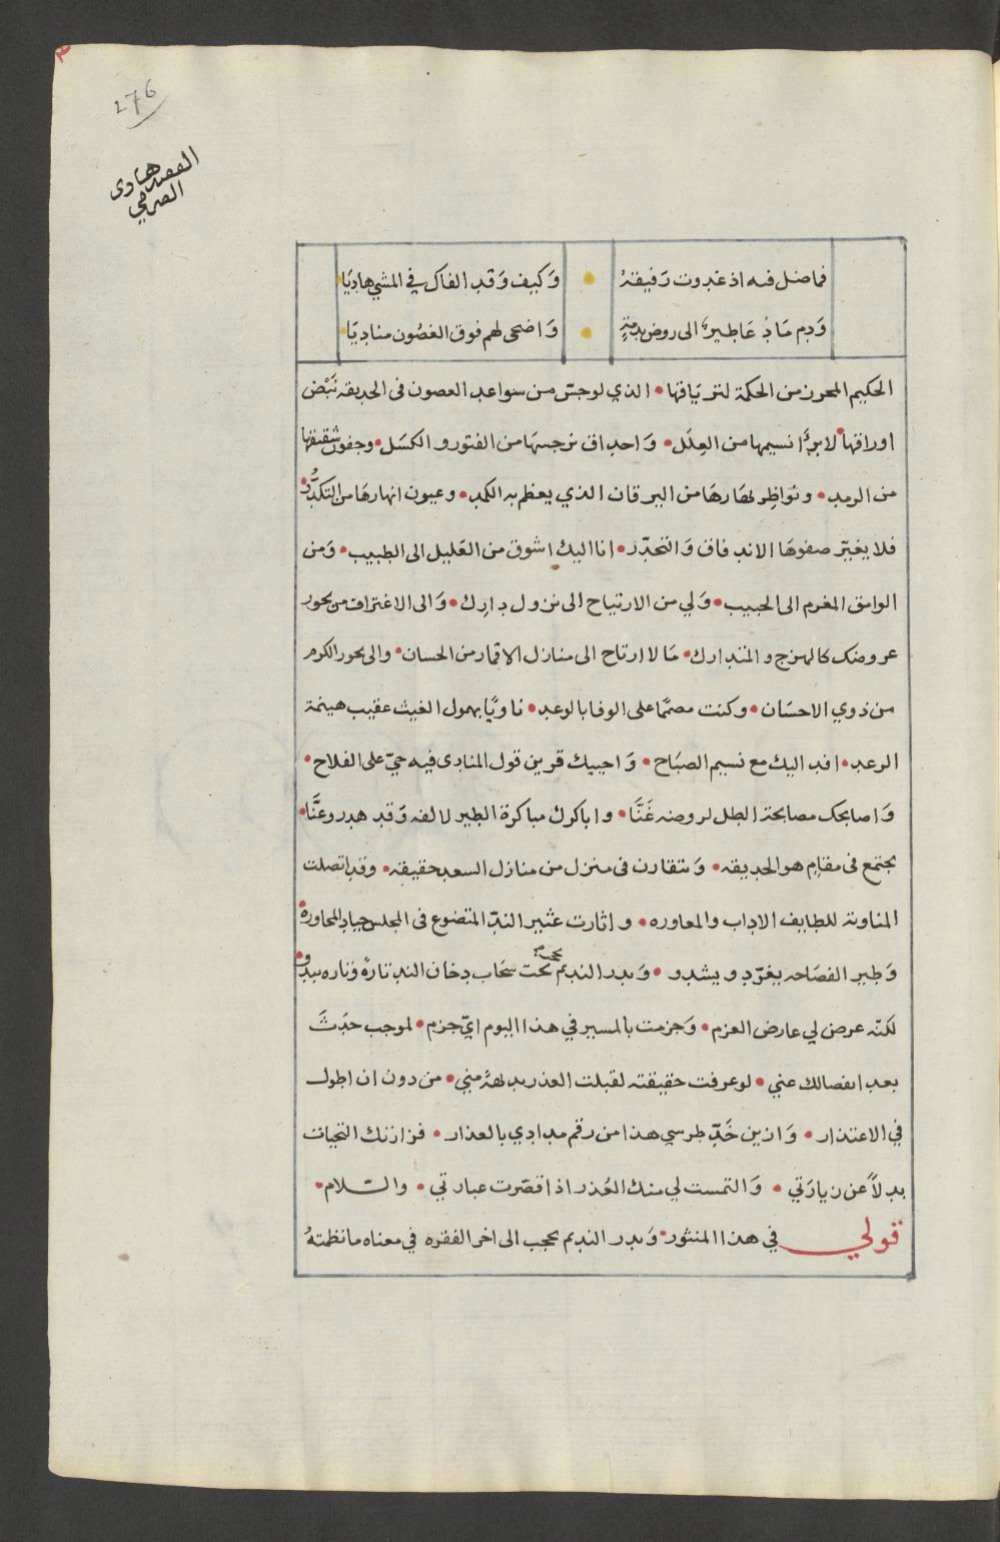 276
فما ضل فيه اذ غدوت رَفيقهُ • وَكيف وَقد الفاك في المشي هاديَا
وَدم مَا دُعَا طير الى روض بدمنةٍ • وَاضحى لهم فوق الغصُون مناديَا
الحكيم المحرز من الحكمة لترياقها • الذي لوجسّ من سواعد الغصون فى الحديقه نَبْض
اوراقها • لابرَأ نسيمها من العِلَل • وَاحداق نرجسهَا من الفتور والكسَل • وجفون شقيقها
من الرمد • ونواظِر بهَارهَا من اليرقان الذي يعظم به الكمد • وعيون انهارهَا من التكدُّر •
فلا يغيّر صفوهَا الاندفاق وَالتحدّر • انا اليك اشوق من العَليل الى الطبيب • وَمن
الوامق المغرم الى الحبيب • وَلي من الارتياح الى نزول دارِك • وَالى الاغتراف من بحور
عروضك كالهزج والمتدارك • مَا لا ارتاح الى منازل الاقمار من الحسان • والى بحور الكرم
من ذوي الاحسَان • وكنت مصمّما على الوفا بالوعد • ناويًا بهمول الغيث عقيب هينمة
الرعد • افد اليك مع نسيم الصبَاح • وَاجيبك قرين قول المنادى فيه حيّ على الفلاح •
وَاصابحك مصابحة الطل لروضه غَنَّا • واباكرك مباكرة الطير لالفه وَقد هدر وعنَّا •
بجتمع فى مقام هو الحديقه • وَنتقارن فى منزل من منازل السعد حقيقه • وقد اتصلت
المناوبة للطايف الاداب والمعاوره • واثارت عثير الندّ المتضوع فى المجلس جياد المحاورة •
وَطير الفصَاحه يغرّد ويشدو • وَبدر النديم يحجب تحت سحَاب دخان الند تارةً وتاره يبدو •
لكنّه عرض لي عارض العزم • وَجزمت بالمسير في هذا اليوم ايّ جزم • لموجب حدَثَ
بعد انفصالك عني • لو عرفت حقيقته لقبلت العذر بديهةً مني • من دون ان اطول
في الاعتذار • وَازين خَدّ طرسي هذا من رقم مدادي بالعذار • فزارتك التحيات
بدلاً عن زيارَتي • وَالتمست لي منك العُذر اذا قصّرت عبارتي • والسّلام •
قولي في هذا المنثور • وَبدر النديم يحجب الى اخر الفقره في معناه ما نظمتهُ